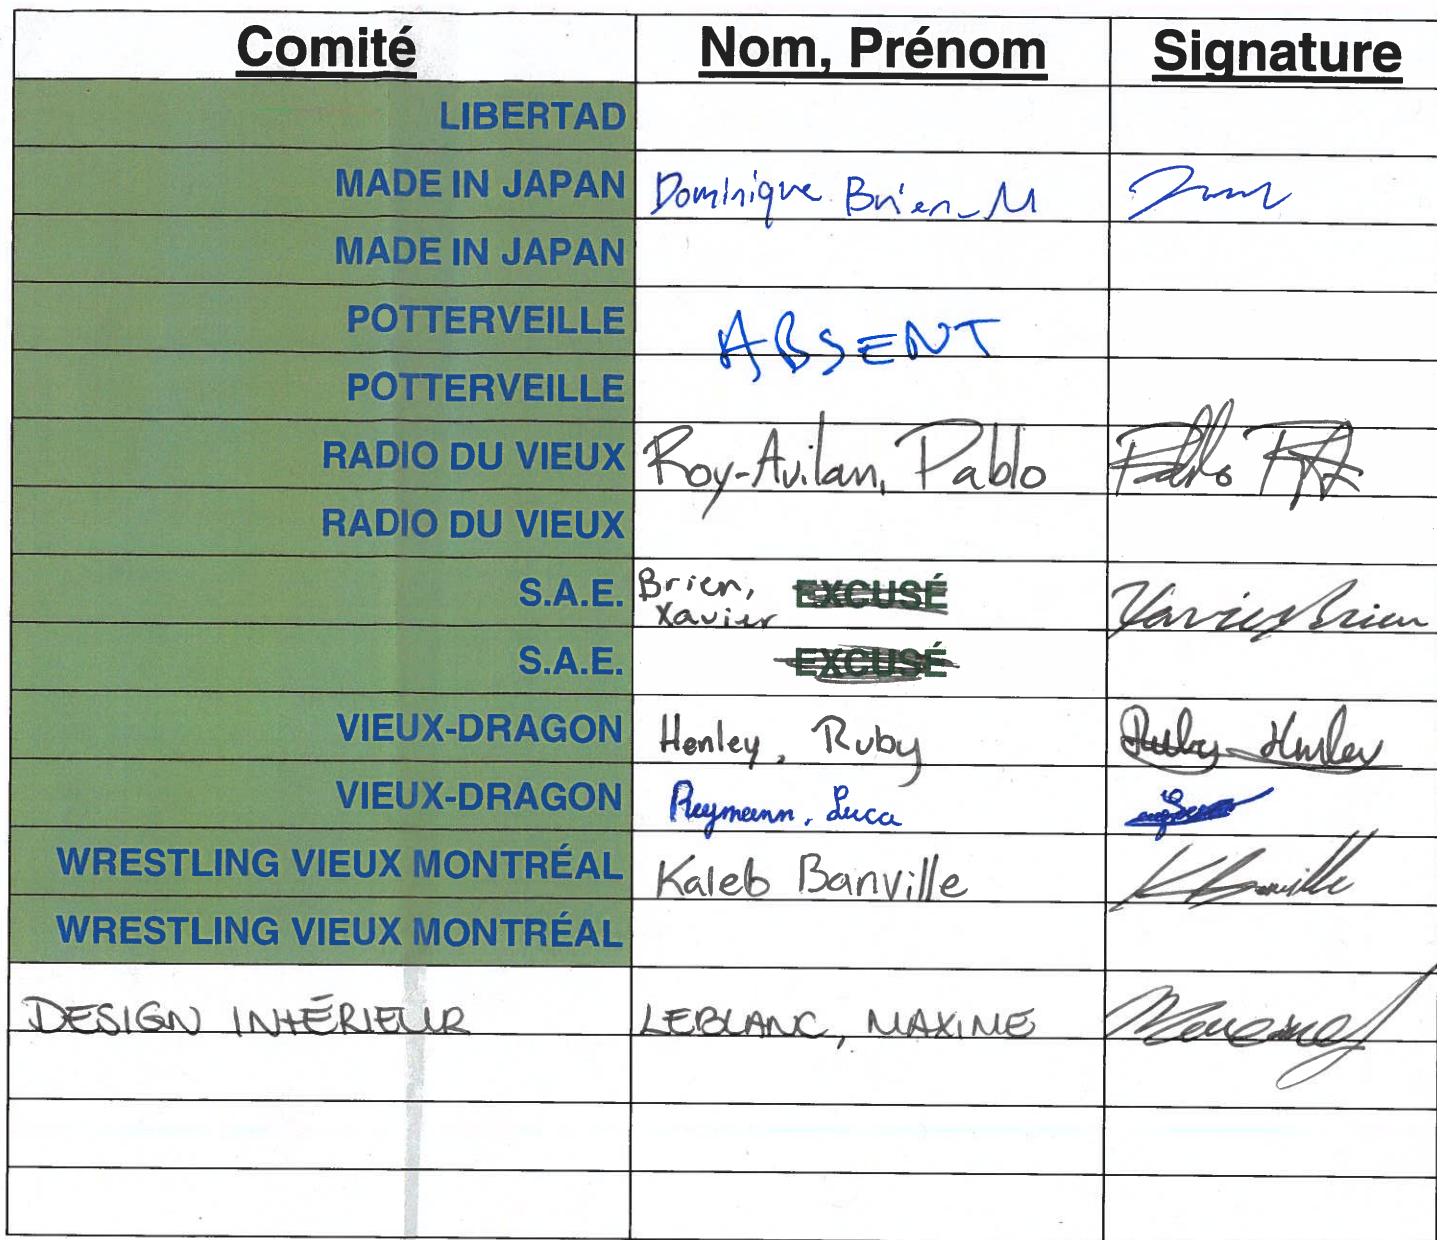 Comité Nom, Prénom Signature
LIBERTAD
MADE IN JAPAN Dominique Brien-M
MADE IN JAPAN
POTTERVEILLE
ABSENT
POTTERVEILLE
RADIO DU VIEUX Roy-Avilan, Pablo Pablo
RADIO DU VIEUX
S.A.E. Brien, Xavier EXCUSÉ Xavier Brien
S.A.E. EXCUSÉ
VIEUX-DRAGON Henley, Ruby Ruby Henley
VIEUX-DRAGON Reymann, Luca
WRESTLING VIEUX MONTRÉAL Kaleb Banville KBanville
WRESTLING VIEUX MONTRÉAL
DESIGN INTÉRIEUR LEBLANC, MAXIME